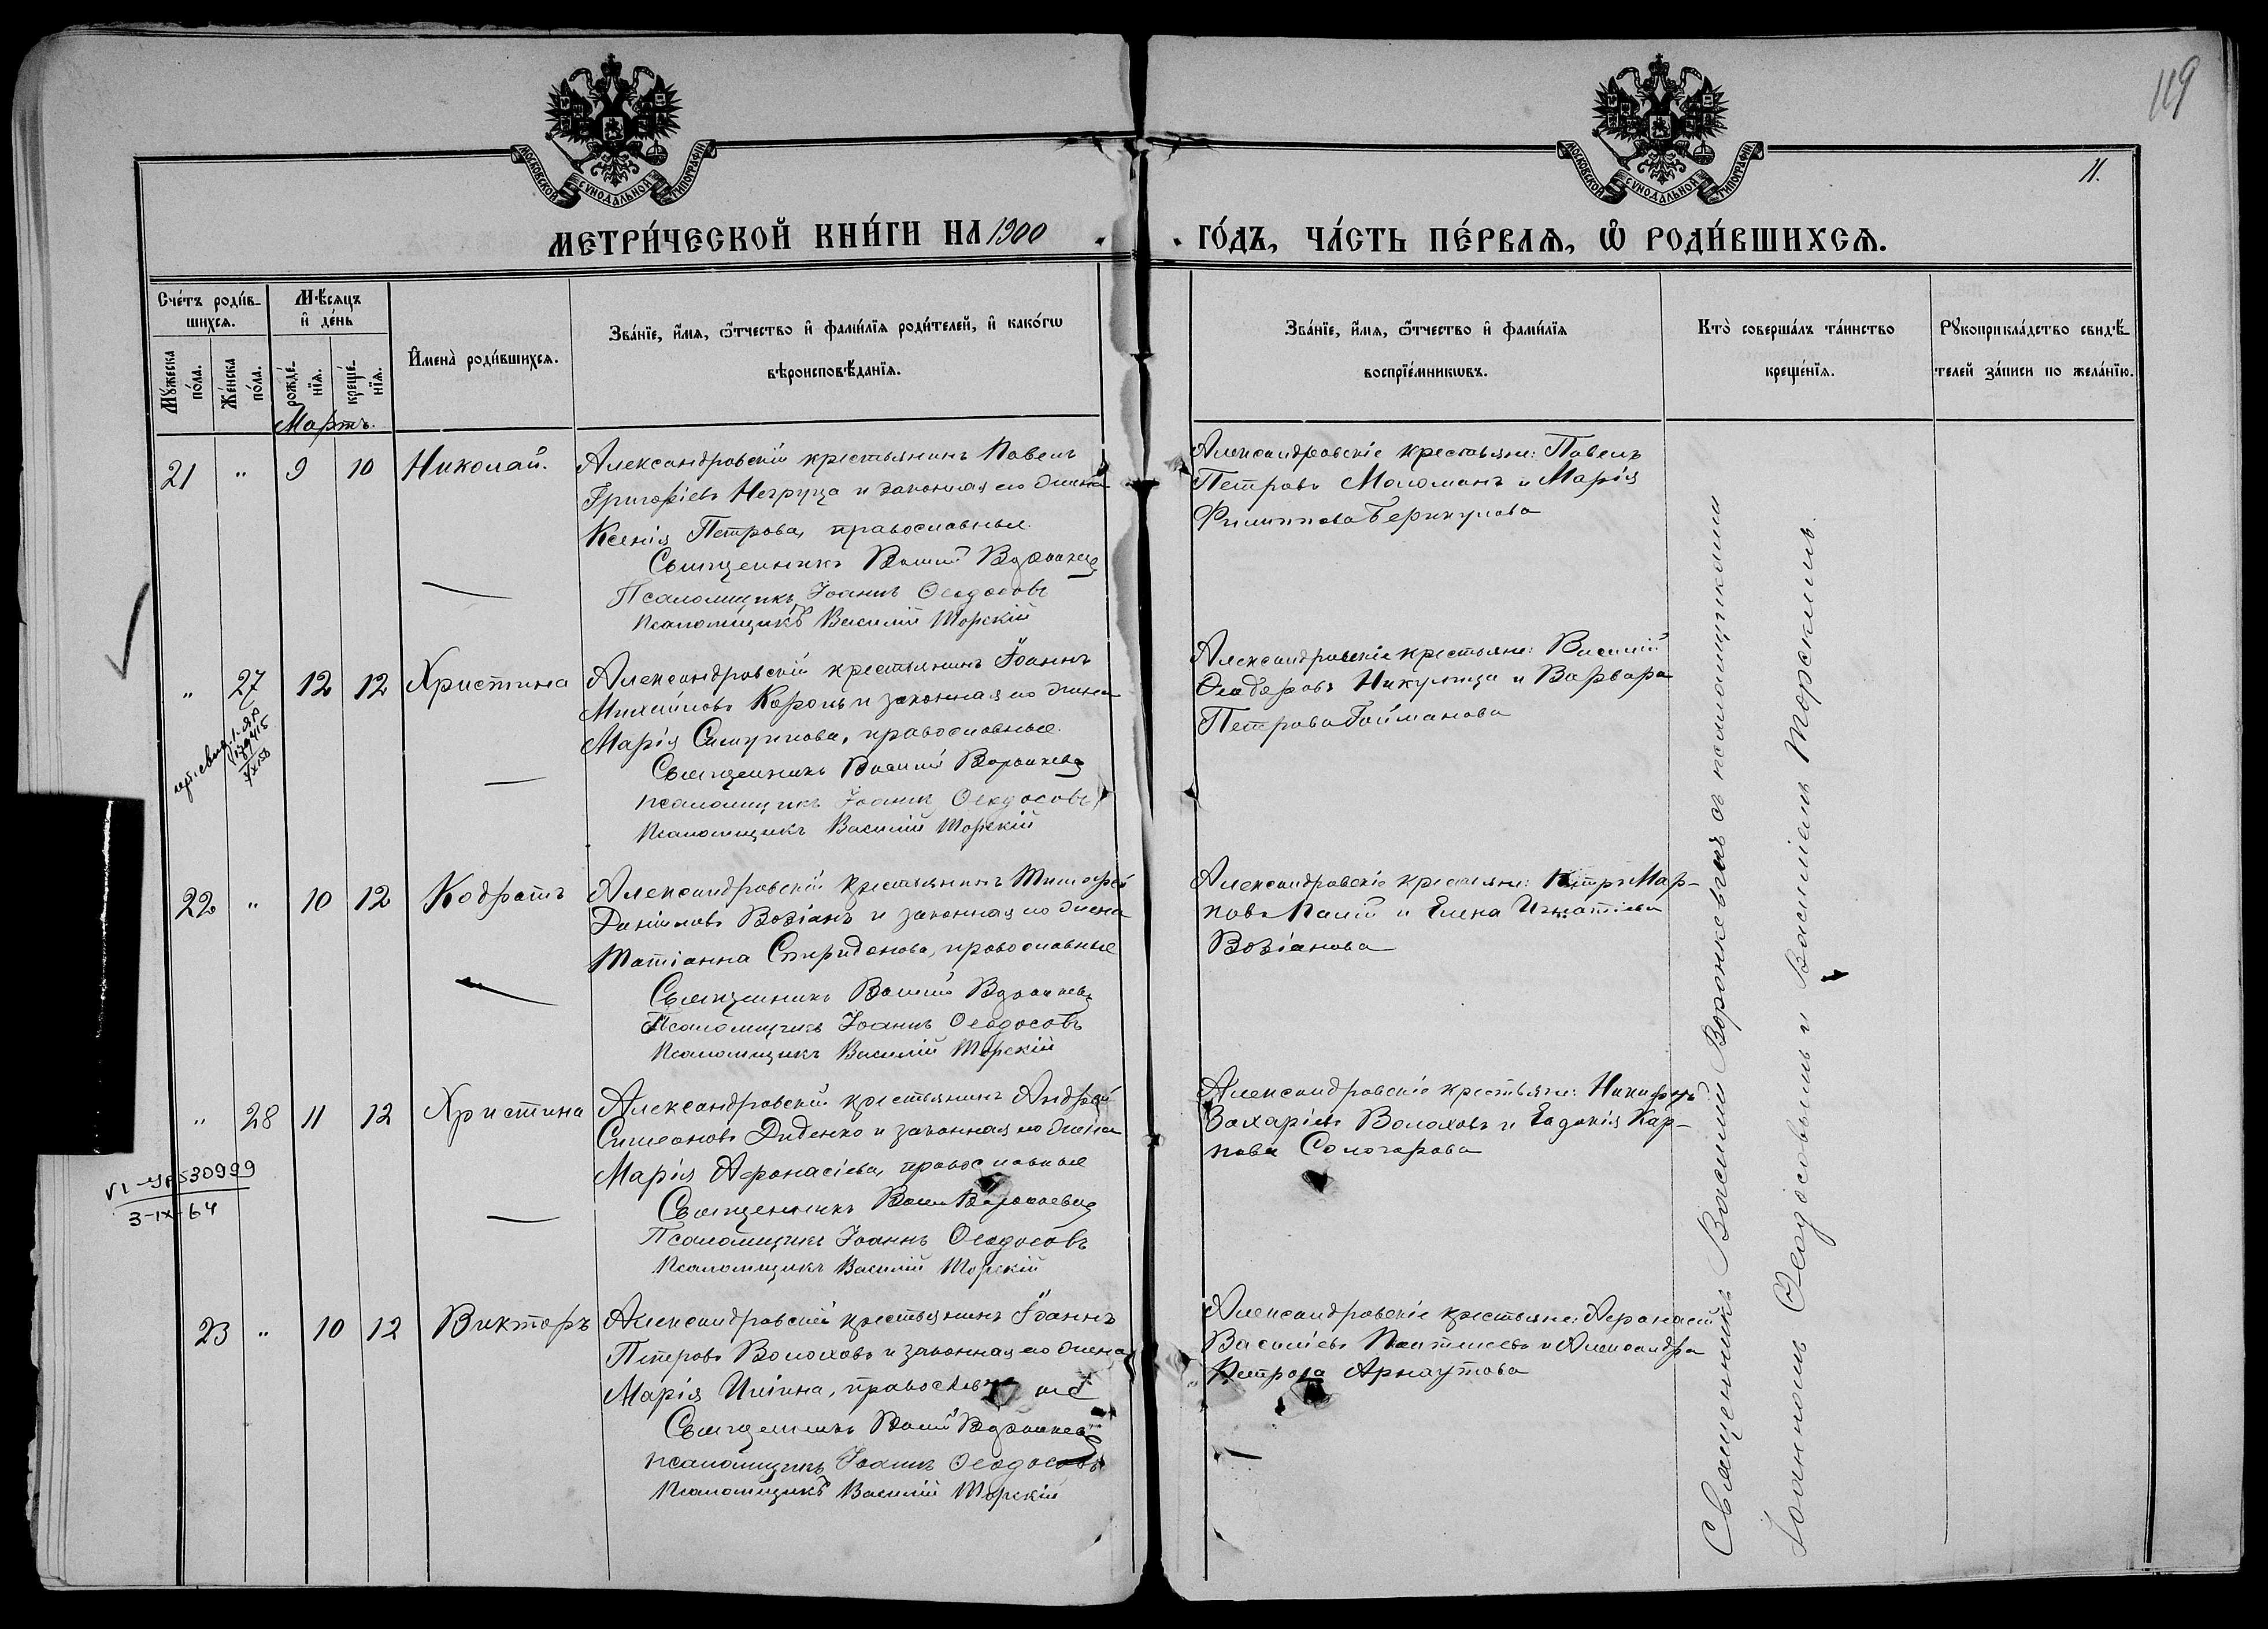 119
11.
МОСКОВСКОЙ СѴНОДАЛЬНОЙ ТИПОГРАФІИ
МОСКОВСКОЙ СѴНОДАЛЬНОЙ ТИПОГРАФІИ
МЕТРИ́ЧЕСКОЙ КНИ́ГИ НА 1900
ГО́ДЪ, ЧА́СТЬ ПЕ́РВАѦ, Ѽ РОДИ́ВШИХСѦ.
Сче́тъ роди́в-
шихсѧ.
Мѣ́сѧцъ
и҆ де́нь
Мꙋ́жеска
по́ла.
Же́нска
по́ла.
рожде́-
нїѧ.
креще́-
нїѧ.
И҆мена̀ роди́вшихсѧ.
Зва́нїе, и҆́мѧ, ѻ҆́тчество и҆ фами́лїѧ роди́телей, и҆ како́гѡ
вѣроисповѣ́данїѧ.
Зва́нїе, и҆́мѧ, ѻ҆́тчество и҆ фами́лїѧ
воспрїе́мникѡвъ.
Кто̀ соверша́лъ та́инство
креще́нїѧ.
Рꙋкоприкла́дство свидѣ́-
телей за́писи по жела́нїю.
Мартъ.
21 " 9 10 Николай.
Александровскій крестьянинъ Павелъ
Григоріевъ Негруца и законная его жена
Ксенія Петрова, православные.
Священникъ Василій Воронкевичъ
Псаломщикъ Іоаннъ Ѳеодосовъ
Псаломщикъ Василій Торскій
Александровскіе крестьяне: Павелъ
Петровъ Моломанъ и Марія
Филиппова Берикулова
" 27 12 12 Христина
Александровскій крестьянинъ Іоаннъ
Михайловъ Король и законная его жена
Марія, православные.
Священникъ Василій Воронкевичъ
Псаломщикъ Іоаннъ Ѳеодосовъ
Псаломщикъ Василій Торскій
Александровскіе крестьяне: Василій
Ѳеодоровъ Никулица и Варвара
Петрова Гойманова
22 " 10 12 Кодратъ
Александровскій крестьянинъ Тимофей
Даніиловъ Возіанъ и законная его жена
Татіанна Спиридонова, православные
Священникъ Василій Воронкевичъ
Псаломщикъ Іоаннъ Ѳеодосовъ
Псаломщикъ Василій Торскій
Александровскіе крестьяне: Петръ Кар-
повъ Палій и Елена Игнатіева
Возіанова
" 28 11 12 Христина
VI-ЯР 530999
3-IX-64
Александровскій крестьянинъ Андрей
Симеоновъ Диденко и законная его жена
Марія Афонасіева, православные
Священникъ Василій Воронкевичъ
Псаломщикъ Іоаннъ Ѳеодосовъ
Псаломщикъ Василій Торскій
Александровскіе крестьяне: Никифоръ
Захаріевъ Волоховъ и Евдокія Кар-
пова Сологорова
23 " 10 12 Викторъ
Александровскій крестьянинъ Іоаннъ
Петровъ Волоховъ и законная его жена
Марія Иліина, православные
Священникъ Василій Воронкевичъ
Псаломщикъ Іоаннъ Ѳеодосовъ
Псаломщикъ Василій Торскій
Александровскіе крестьяне: Афонасій
Василіевъ и Александра
Петрова Арнаутова
Священникъ Василій Воронкевичъ съ псаломщиками
Іоанномъ Ѳеодосовымъ и Василіемъ Торскимъ.